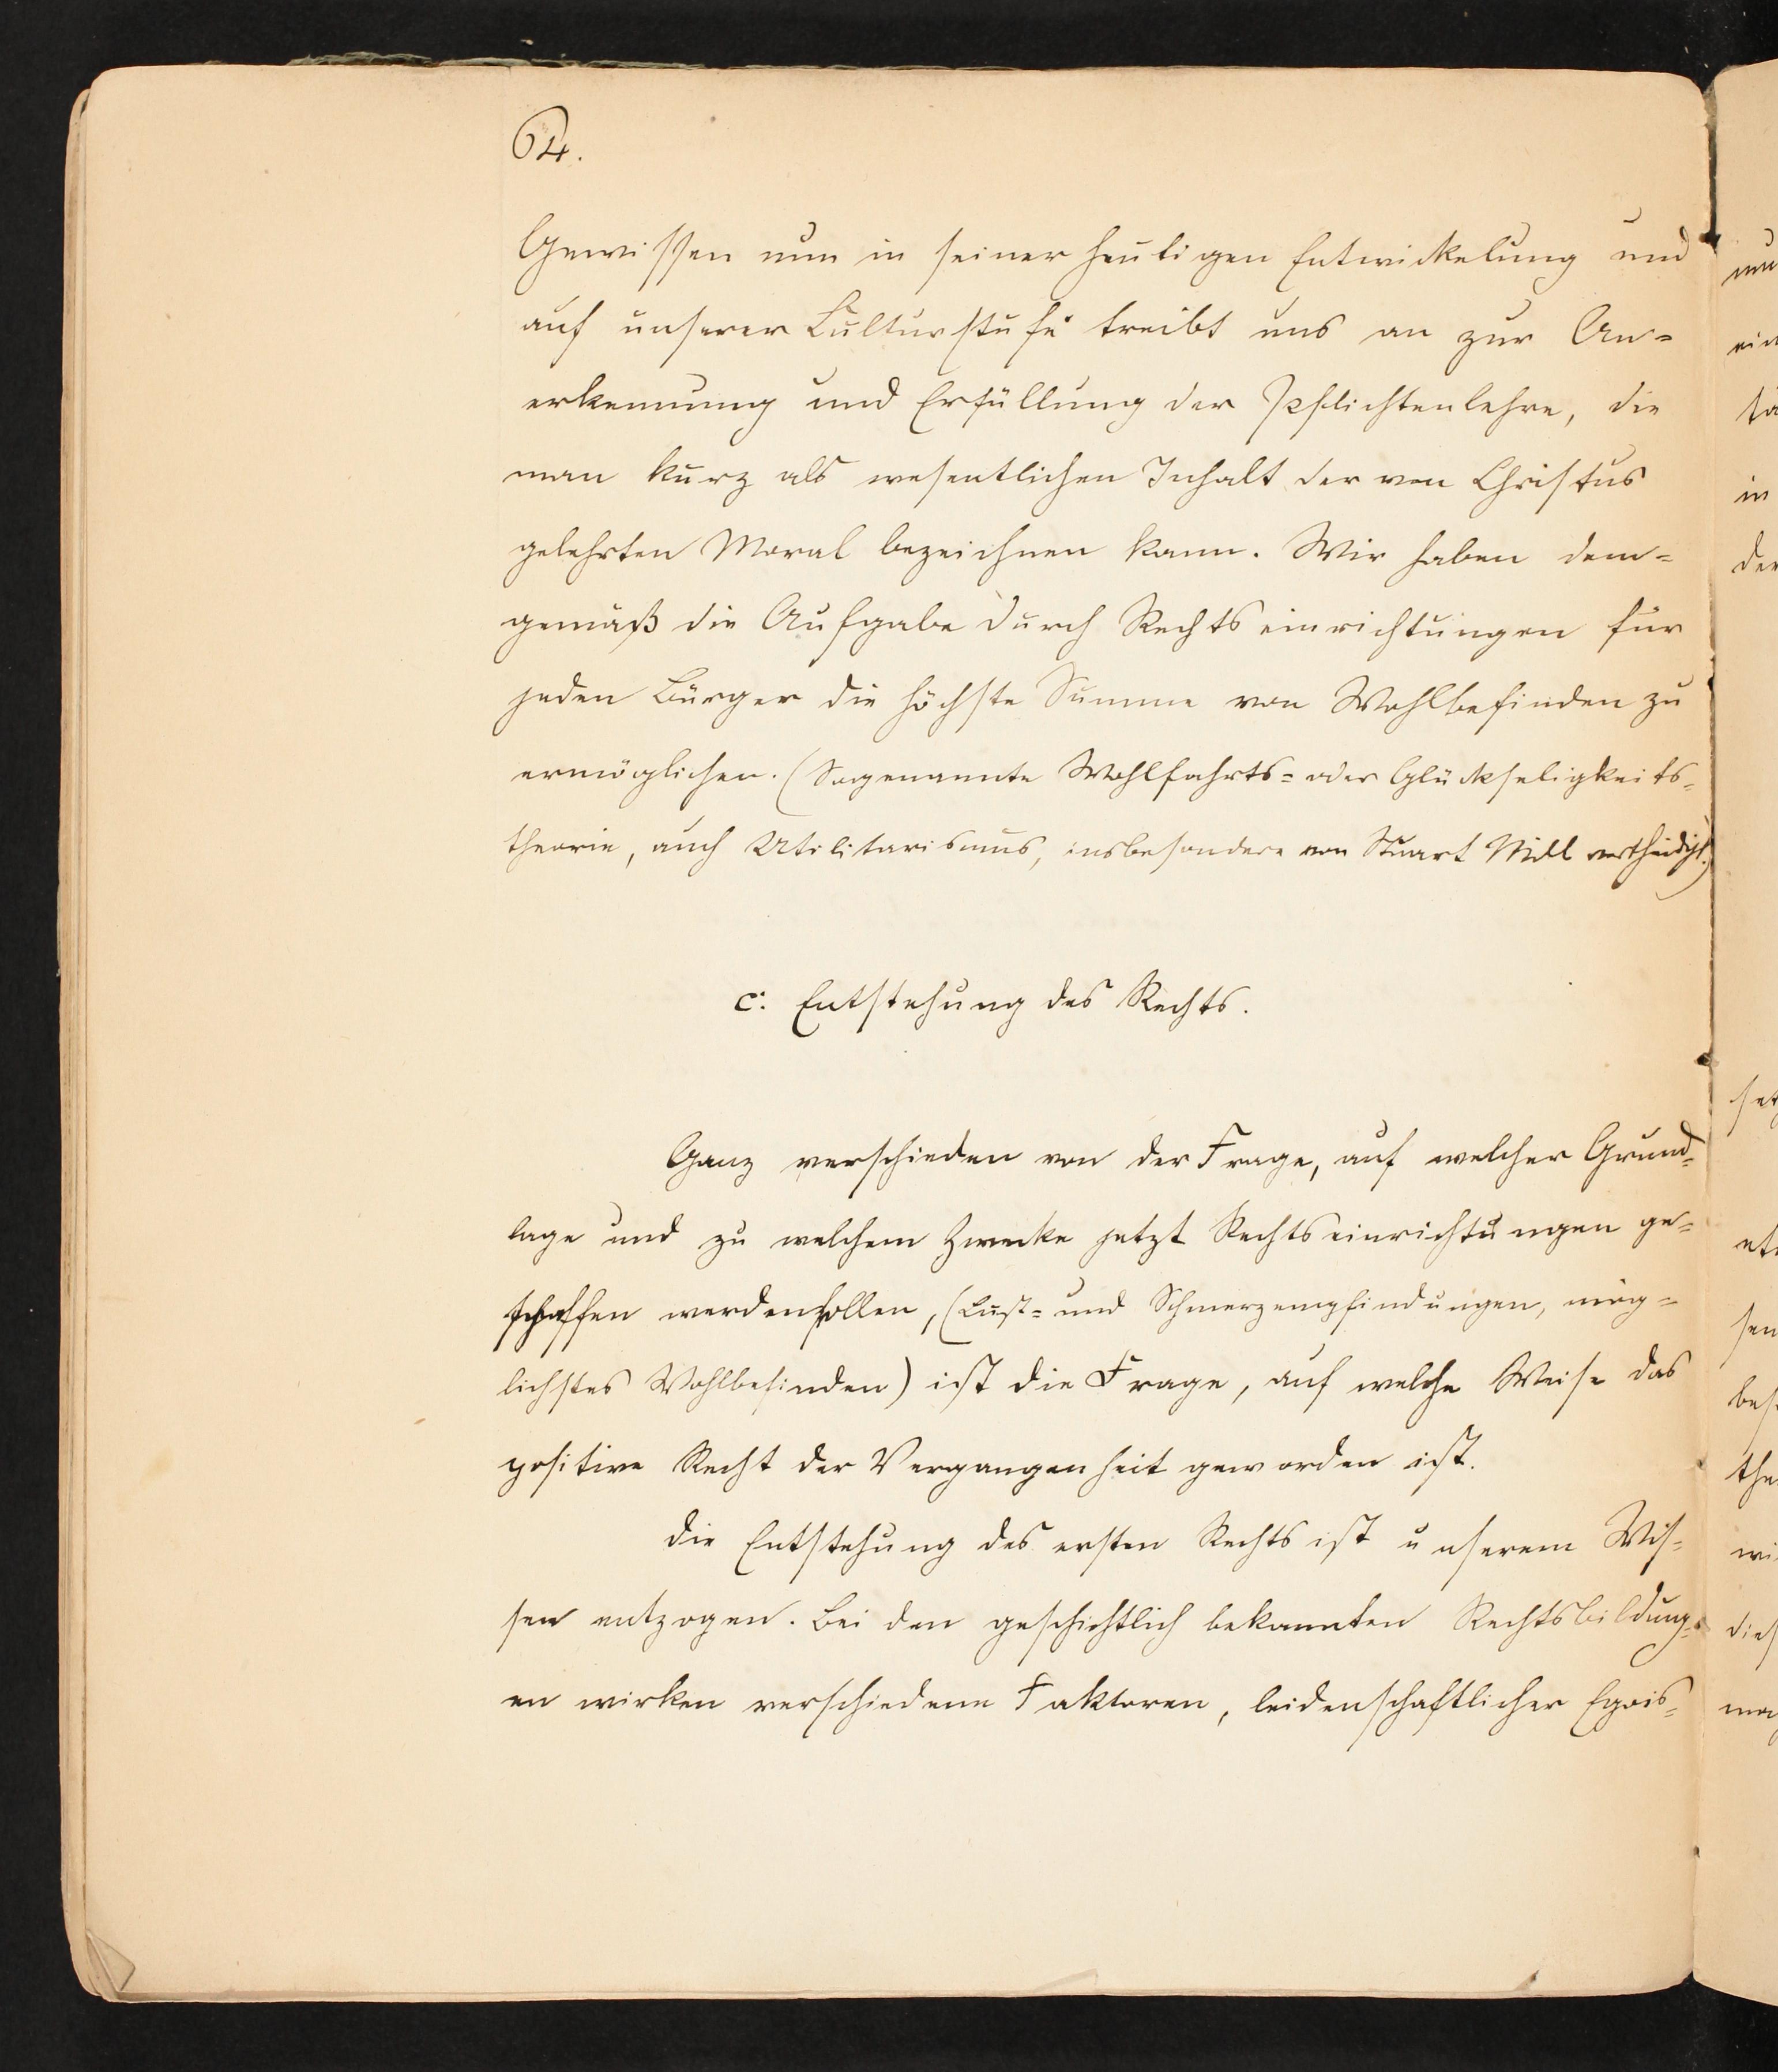 64.
Gewissen nun in seiner heutigen Entwickelung und
auf unserer Culturstufe treibt uns an zur An=
erkennung und Erfüllung der Pflichtenlehre, die
man kurz als wesentlichen Inhalt der von Christus
gelehrten Moral bezeichnen kann. Wir haben dem=
gemäß die Aufgabe durch Rechtseinrichtungen für
jeden Bürger die höchste Summe von Wohlbefinden zu
ermöglichen. (Sogenannte Wohlfahrts= oder Glückseligkeits=
theorie, auch Utilitarismus, insbesondere von Stuart Mill vertheidigt.)
c. Entstehung des Rechts.
Ganz verschieden von der Frage, auf welcher Grund=
lage und zu welchem Zwecke jetzt Rechtseinrichtungen ge=
schaffen werden sollen, (Lust= und Schmerzempfindungen, mög=
lichstes Wohlbefinden) ist die Frage, auf welche Weise das
positive Recht der Vergangenheit geworden ist.
Die Entstehung des ersten Rechts ist unserem Wis=
sen entzogen. Bei den geschichtlich bekannten Rechtsbildung=
en wirken verschiedene Faktoren, leidenschaftlicher Egois=